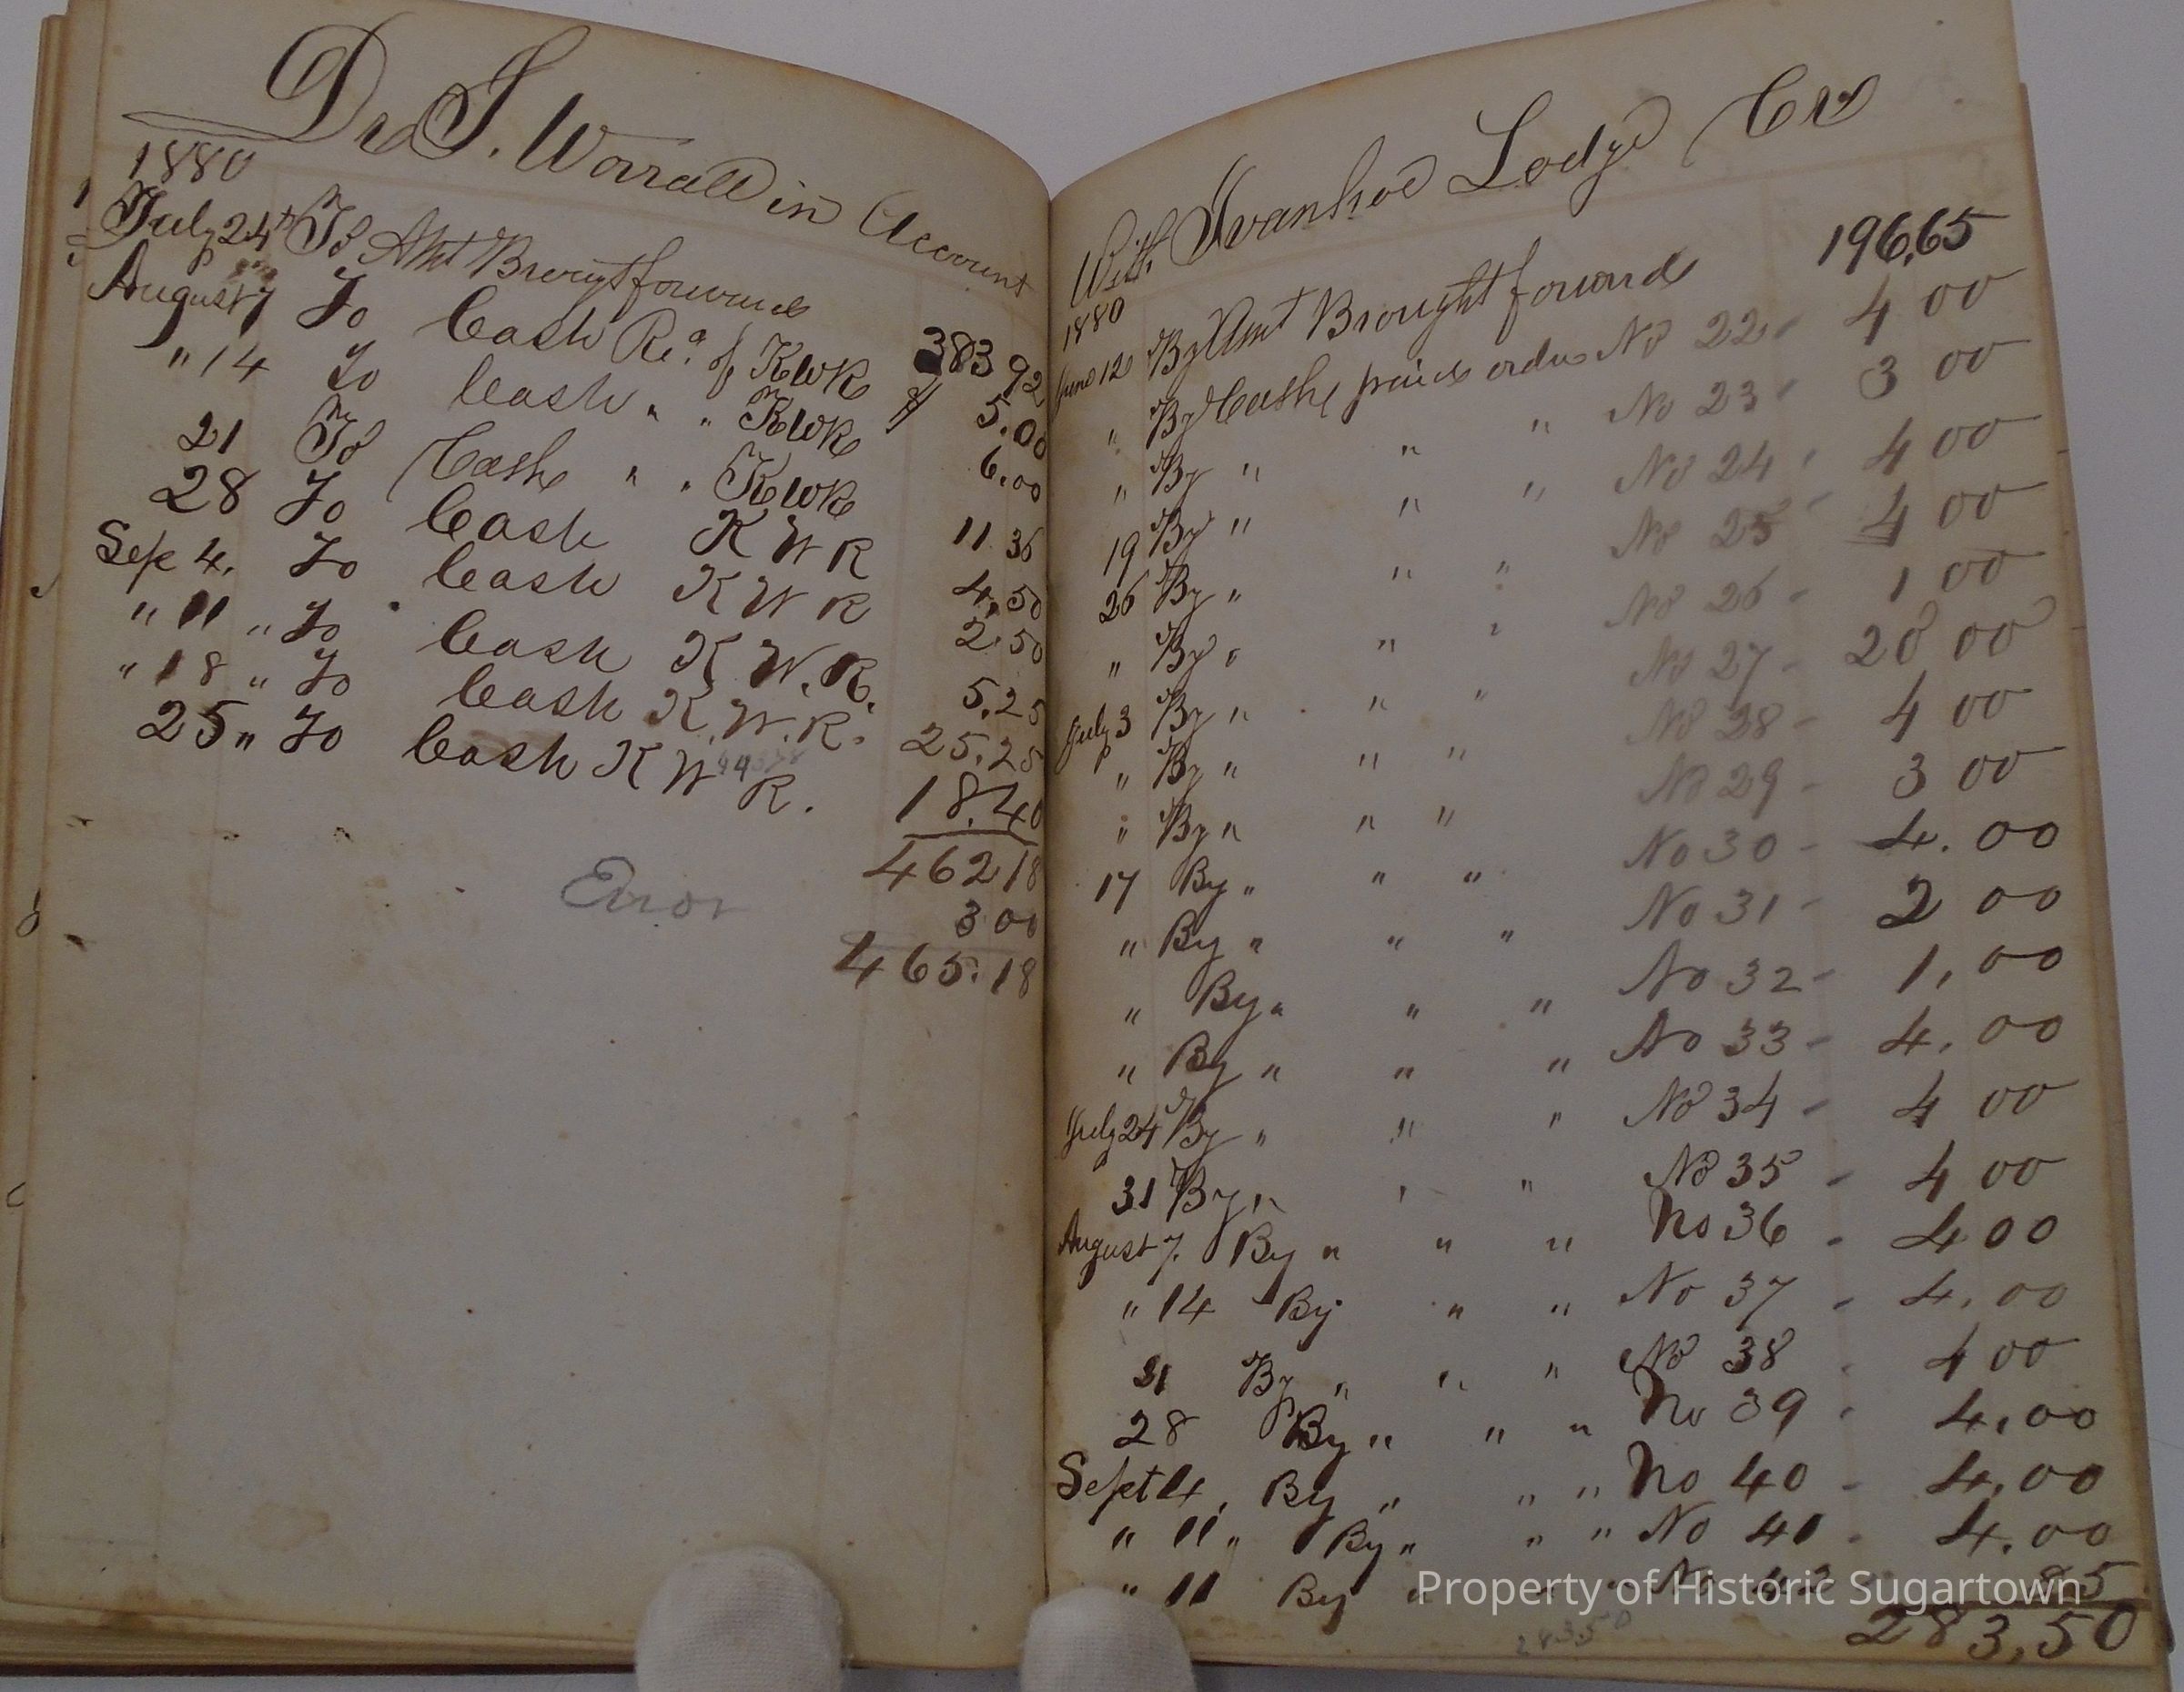 Dr S. Worrall in Account
1880
July 24th To Amt Brougt forward 383 92
August 7 To Cash Rec. of KWR $ 5.00
" 14 To Cash " " KWR 6.00
21 To Cash " " KWR 11 36
28 To Cash KWR 4,50
Sep 4. To Cash KWR 2.50
" 11 " To Cash K W.R. 5.25
" 18 " To Cash K.W.R. 25.25
25 " To Cash K W R. 18.40
46218
Error 3 00
465.18
With Ivanhoe Lodge Cr
1880
June 12 By Amt Brought forward 196,65
" By Cash paid order No 22 - 4 00
" By " " " No 23 - 3 00
19 By " " " No 24 - 4 00
26 By " " " No 25 - 4 00
" By " " " No 26 - 1 00
July 3 By " " " No 27 - 20 00
" By " " " No 28 - 4 00
" By " " " No 29 - 3 00
17 By " " " No 30 - 4.00
" By " " " No 31 - 2 00
" By " " " No 32 - 1,00
" By " " " No 33 - 4.00
July 24 By " " " No 34 - 4 00
31 By " " " No 35 - 4 00
August 7. By " " " No 36 - 400
" 14 By " " No 37 - 4.00
21 By " " " No 38 - 4 00
28 By " " " No 39 - 4.00
Sept 4, By " " " No 40 - 4.00
" 11 " By " " " No 41 - 4.00
" 11 By " " " No 42 85
283,50
28350
Property of Historic Sugartown